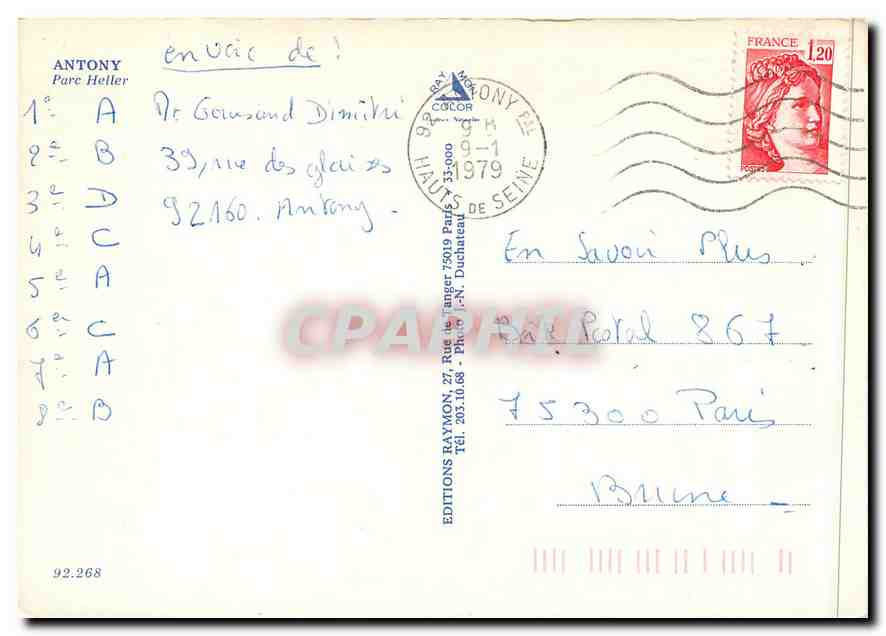 ANTONY
Parc Heller
envoie de !
Mr Goursand Dimitri
39, rue des glaises
92160. Antony -
1e A
2e B
3e D
4e C
5e A
6e C
7e A
8e B
92.268
RAYMON
COLOR
EDITIONS RAYMON, 27, Rue de Tanger 75019 Paris
Tél. 203.10.68 - Photo J.-N. Duchateau
33-000
92 ANTONY Pal
9 H
9-1
1979
HAUTS DE SEINE
FRANCE 1,20
POSTES
En Savoir Plus
Boîte Postal 867
75300 Paris
Brune -
CPAPHIL